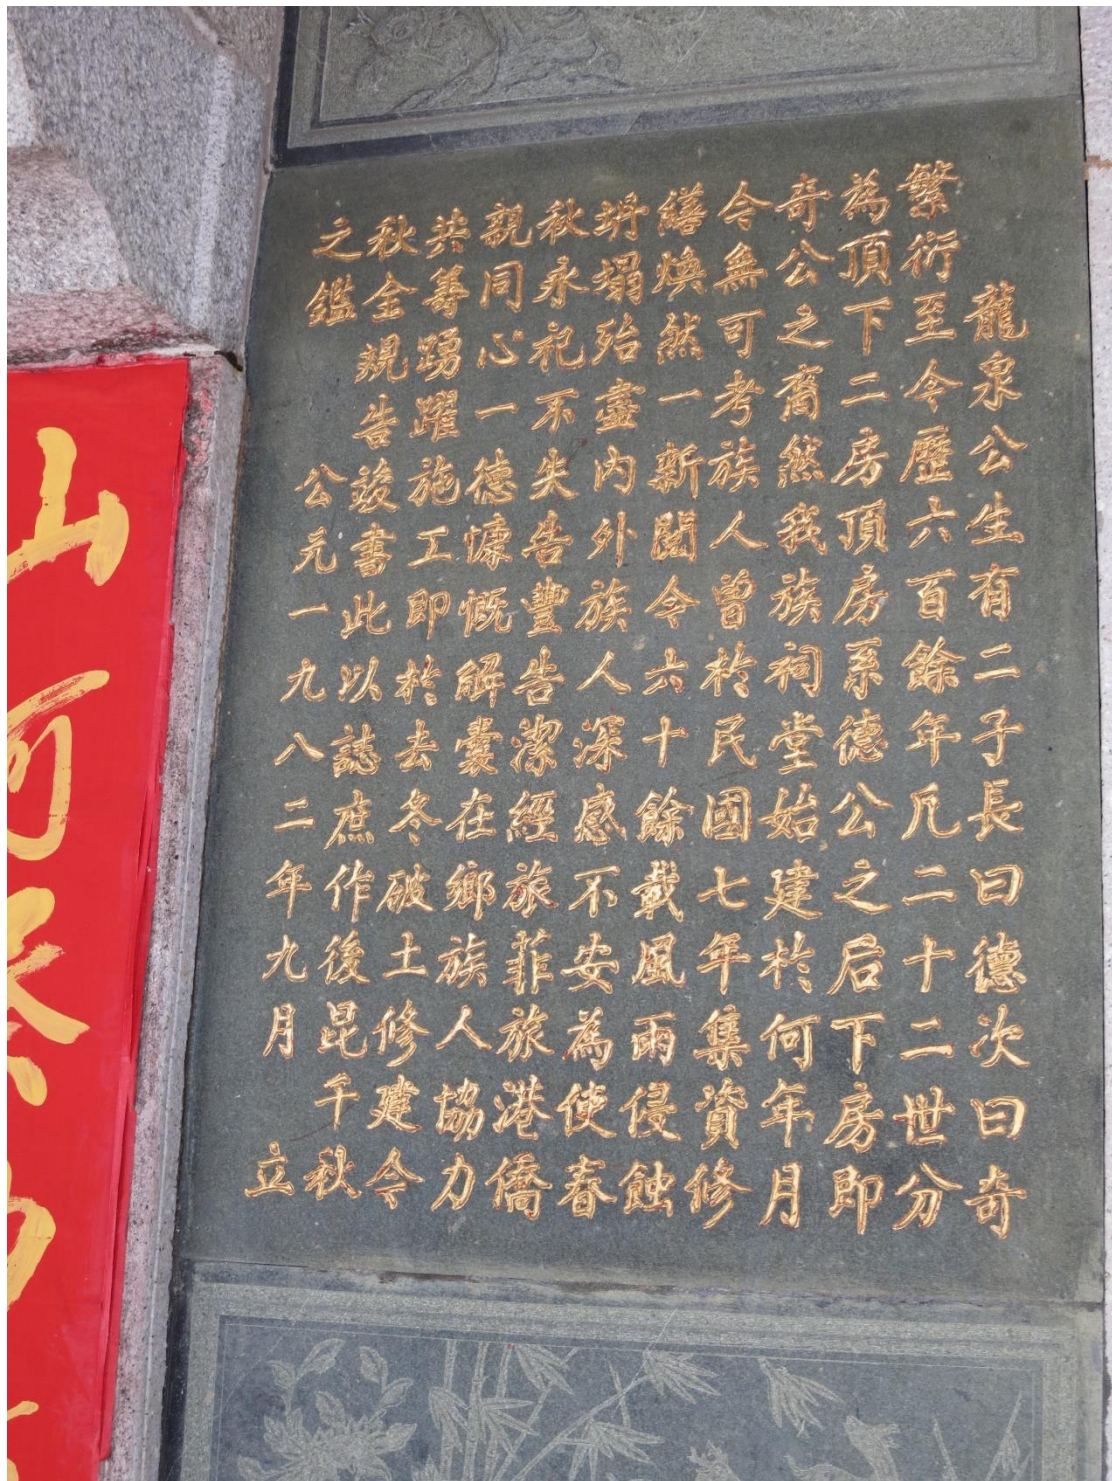 龍泉公生有二子長曰德次曰奇
繁衍至今歷六百餘年凡二十二世分
為頂下二房頂房系德公之后下房即
奇公之裔然我族祠堂始建於何年月
今無可考族人曾於民國七年集資修
繕煥然一新閱今六十餘載風雨侵蝕
坍塌殆盡內外族人深感不安為使春
秋永祀不失告豐告潔經旅菲旅港僑
親同心一德慷慨解囊在鄉族人協力
共筹踴躍施工即於去冬破土修建今
秋金規告竣書此以誌庶作後昆千秋
之鑑
公元一九八二年九月 立
山河